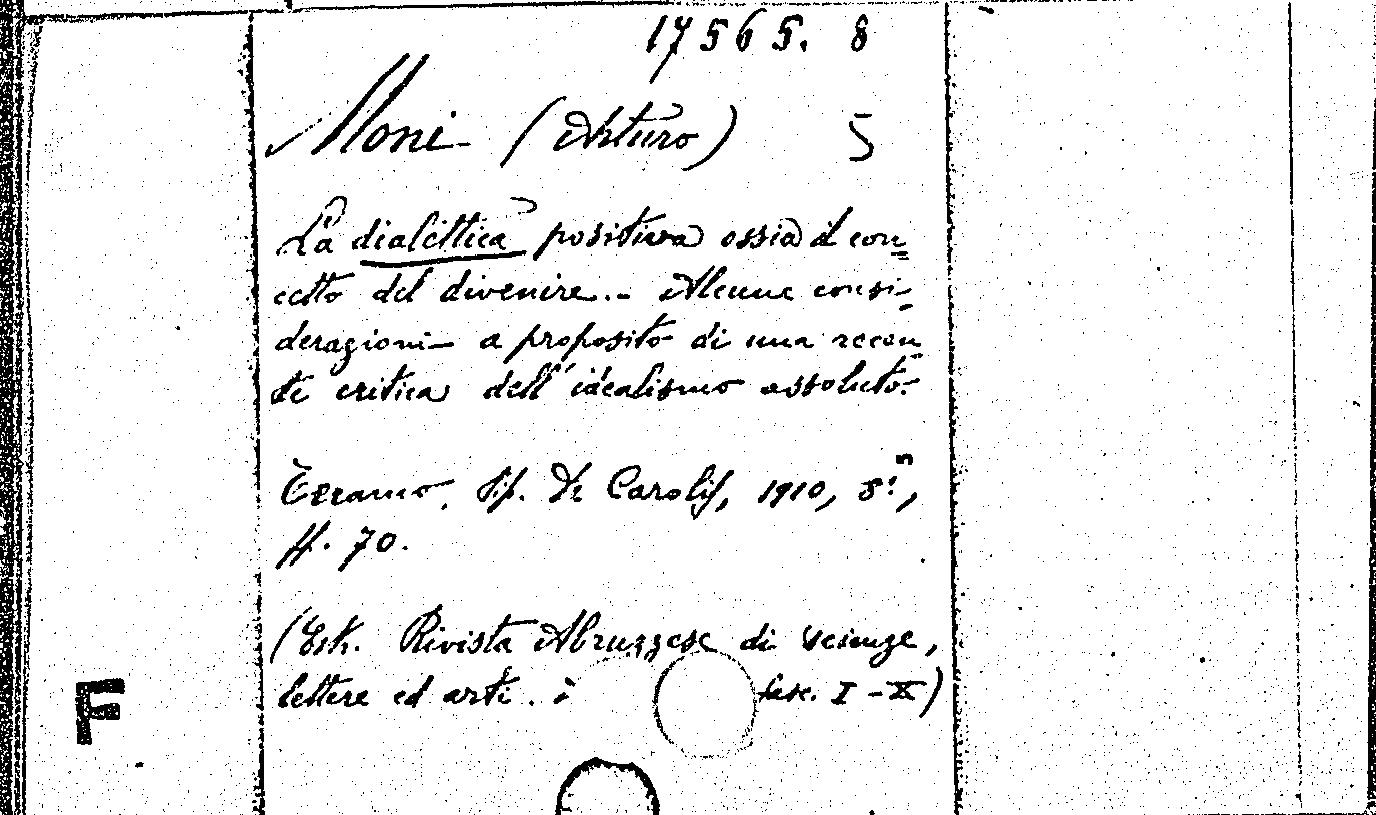 17565. 8
Moni (Arturo) 5
La dialettica positiva ossia il con=
cetto del divenire. - Alcune consi=
derazioni a proposito di una recen=
te critica dell'idealismo assoluto.
Teramo, tip. De Carolis, 1910, 8.°,
pp. 70.
(Estr. Rivista Abruzzese di scienze,
lettere ed arti. fasc. I - X)
F